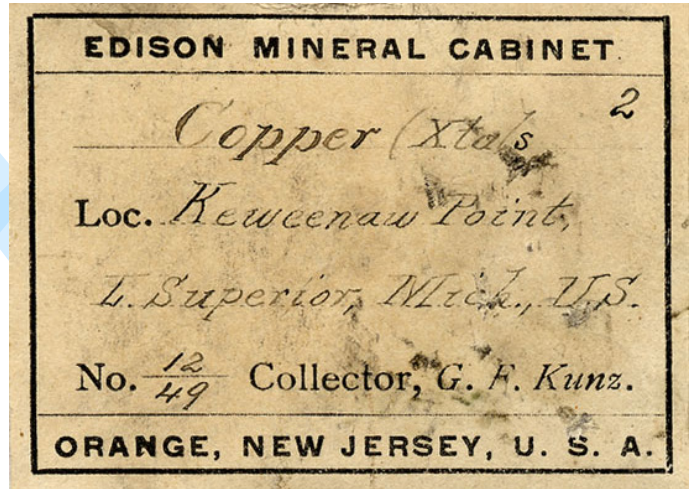 EDISON MINERAL CABINET
2
Copper (Xtals
Loc. Keweenaw Point,
L. Superior, Mich., U.S.
No. 12/49 Collector, G. F. Kunz.
ORANGE, NEW JERSEY, U. S. A.